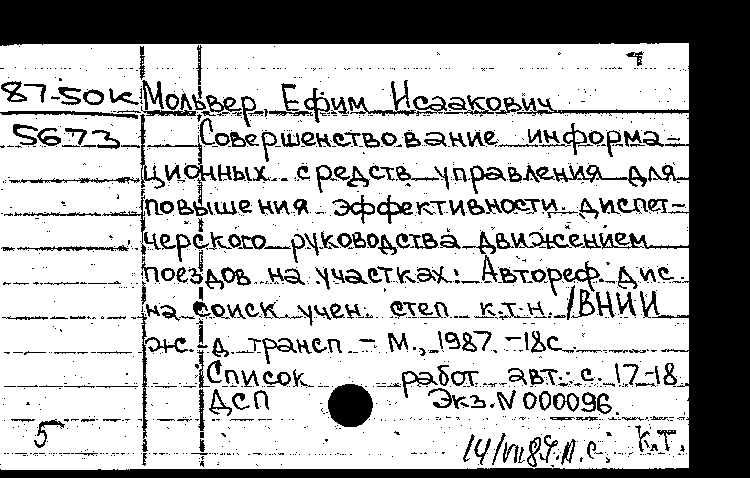 87-50к Мольвер, Ефим Исаакович
5673 Совершенствование информа-
ционных средств управления для
повышения эффективности диспет-
черского руководства движением
поездов на участках: Автореф. дис.
на соиск учен. степ к.т.н. /ВНИИ
ж.-д трансп - М., 1987 -18с
Список работ авт.: с. 17-18
ДСП Экз. N 000096.
5 к.т.